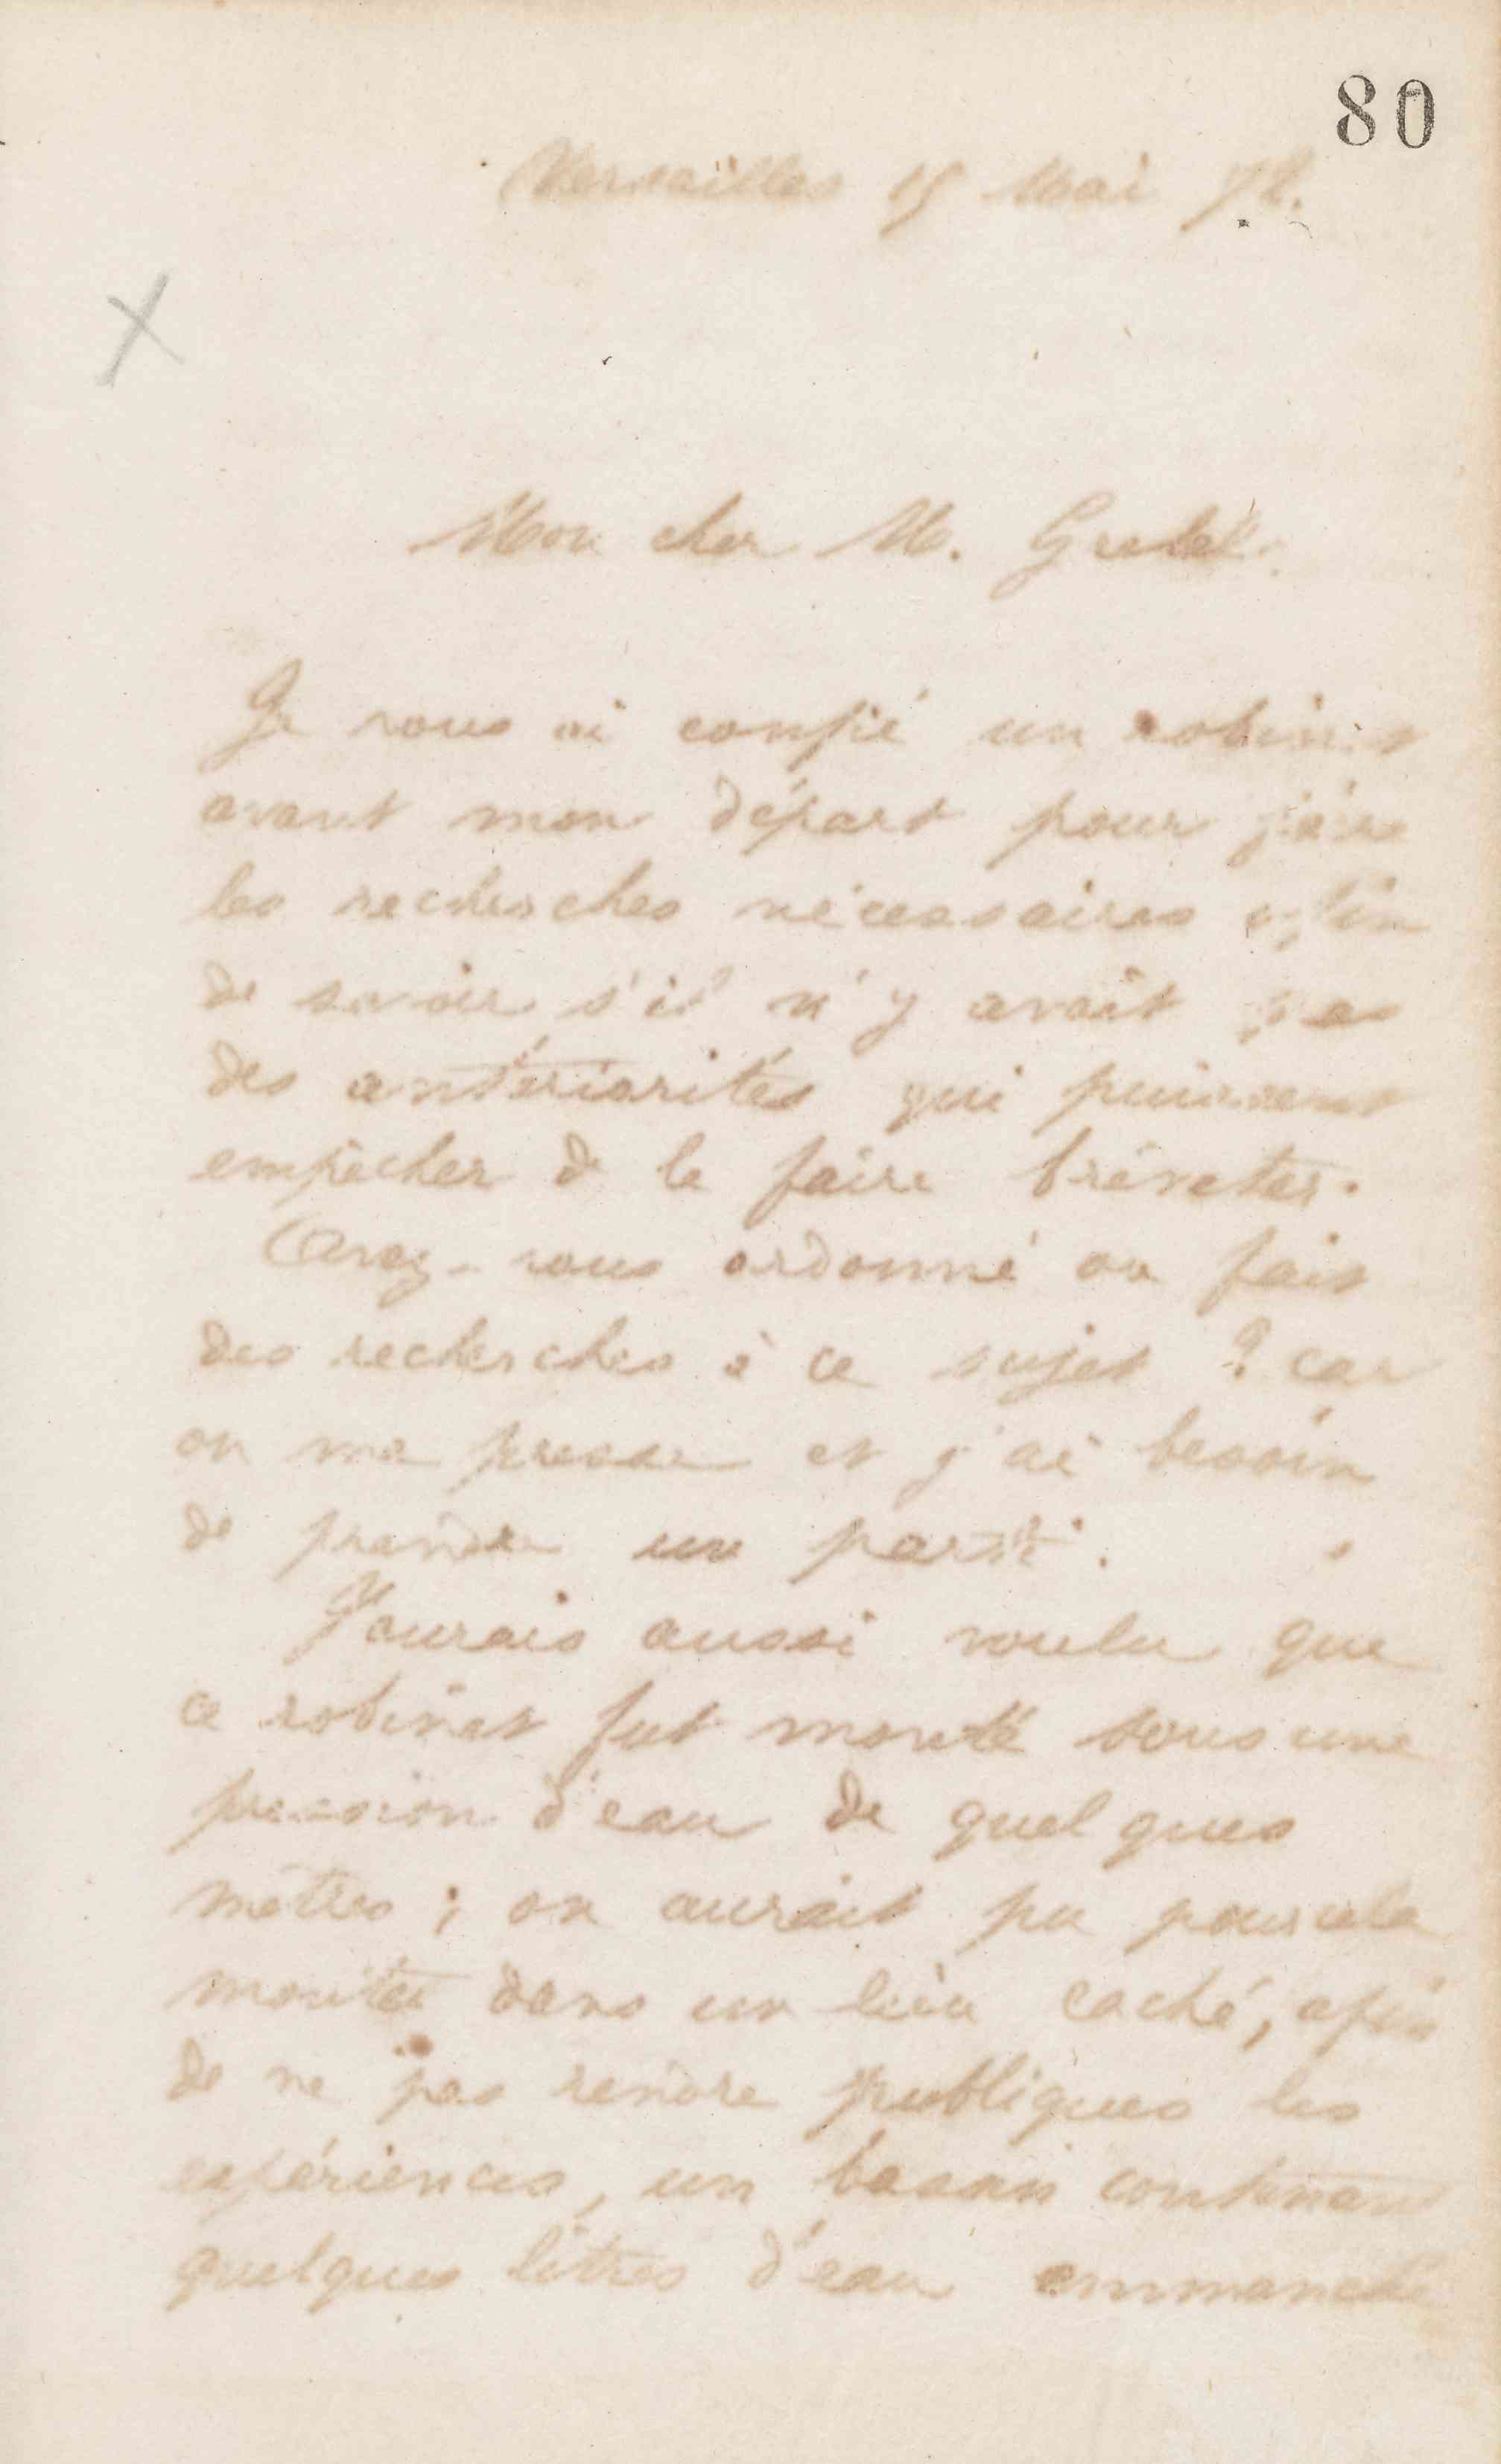 80
Versailles 15 Mai 72.
X
Mon cher M. Grebel.
Je vous ai confié un robinet
avant mon départ pour faire
les recherches nécessaires afin
de savoir s'il n'y avait pas
des antériorités qui puissent
empêcher de le faire brèveter.
Avez-vous ordonné ou fait
des recherches à ce sujet ? car
on me presse et j'ai besoin
de prendre un parti.
J'aurais aussi voulu que
ce robinet fut monté sous une
pression d'eau de quelques
mètres ; on aurait pu pour cela
monter dans un lieu caché, afin
de ne pas rendre publiques les
expériences, un bassin contenant
quelques litres d'eau emmanché